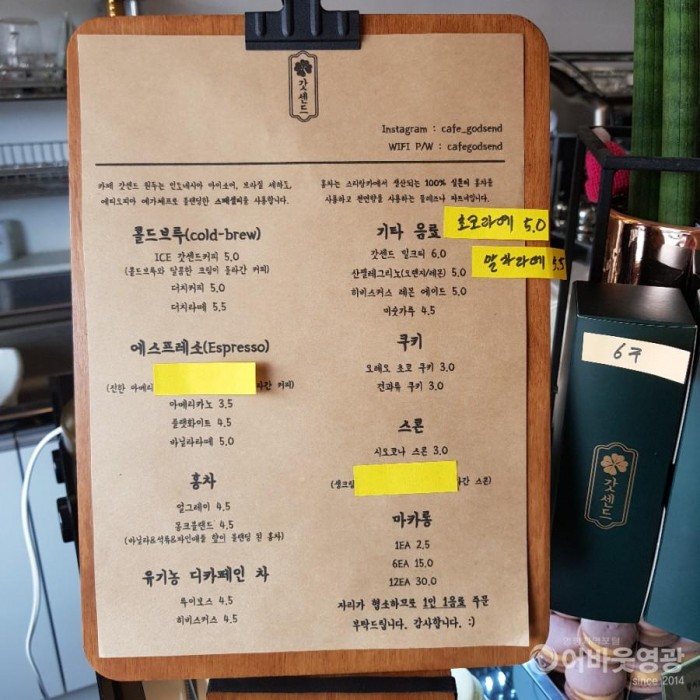 갓센드
Instagram : cafe_godsend
WIFI P/W : cafegodsend
카페 갓센드 원두는 인도네시아 아이소어, 브라질 세하도,
에티오피아 예가체프로 블렌딩한 스페셜티를 사용합니다.
홍차는 스리랑카에서 생산되는 100% 실론티 홍차를
사용하고 천연향을 사용하는 믈레즈나 파트너입니다.
콜드브룩(cold-brew)
ICE 갓센드커피 5.0
(콜드브룩와 달콤한 크림이 올라간 커피)
더치커피 5.0
더치라떼 5.5
에스프레소(Espresso)
(진한 아메리
라간 커피)
아메리카노 3.5
플랫화이트 4.5
바닐라라떼 5.0
홍차
얼그레이 4.5
몽크블렌드 4.5
(바닐라&석류&자인애플 향이 블렌딩 된 홍차)
유기농 디카페인 차
루이보스 4.5
히비스커스 4.5
기타 음료
초코라떼 5.0
갓센드 밀크티 6.0
말차라떼 5.5
산펠레그리노(오렌지/레몬) 5.0
히비스커스 레몬 에이드 5.0
미숫가루 4.5
쿠키
오레오 초코 쿠키 3.0
견과류 쿠키 3.0
스콘
시오코나 스콘 3.0
(생크림
라간 스콘)
마카롱
1EA 2.5
6EA 15.0
12EA 30.0
자리가 협소하므로 1인 1음료 주문
부탁드립니다. 감사합니다. :)
6구
갓센드
어바웃영광
since 2014